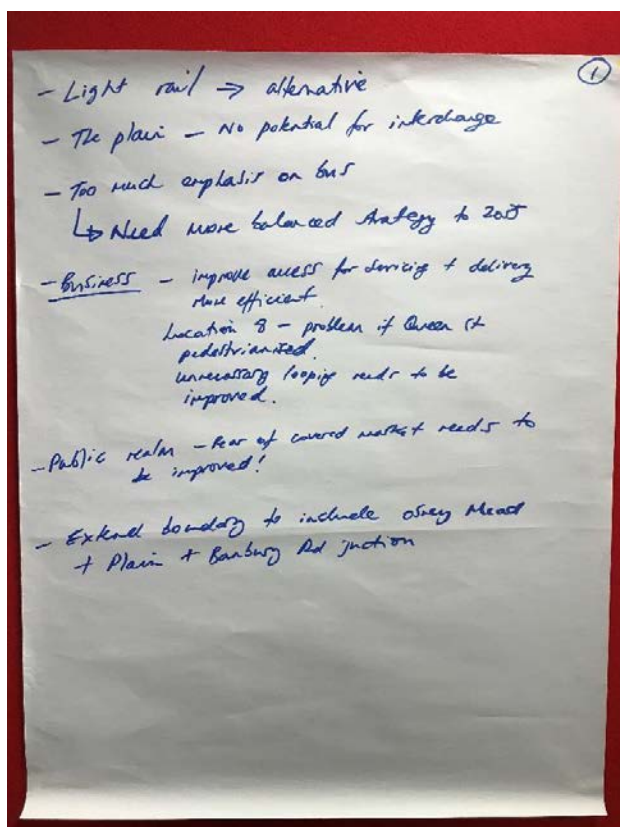 ①
- Light rail → alternative
- The plain - No potential for interchange
- Too much emphasis on bus
↳ Need more balanced strategy to
- Business - improve access for servicing + delivery
more efficient.
Location 8 - problem if Queen St
pedestrianized.
unnecessary looping needs to be
improved.
- Public realm - Rear of covered market needs to
be improved!
- Extend boundary to include Osney Mead
+ Plain + Banbury Rd juction